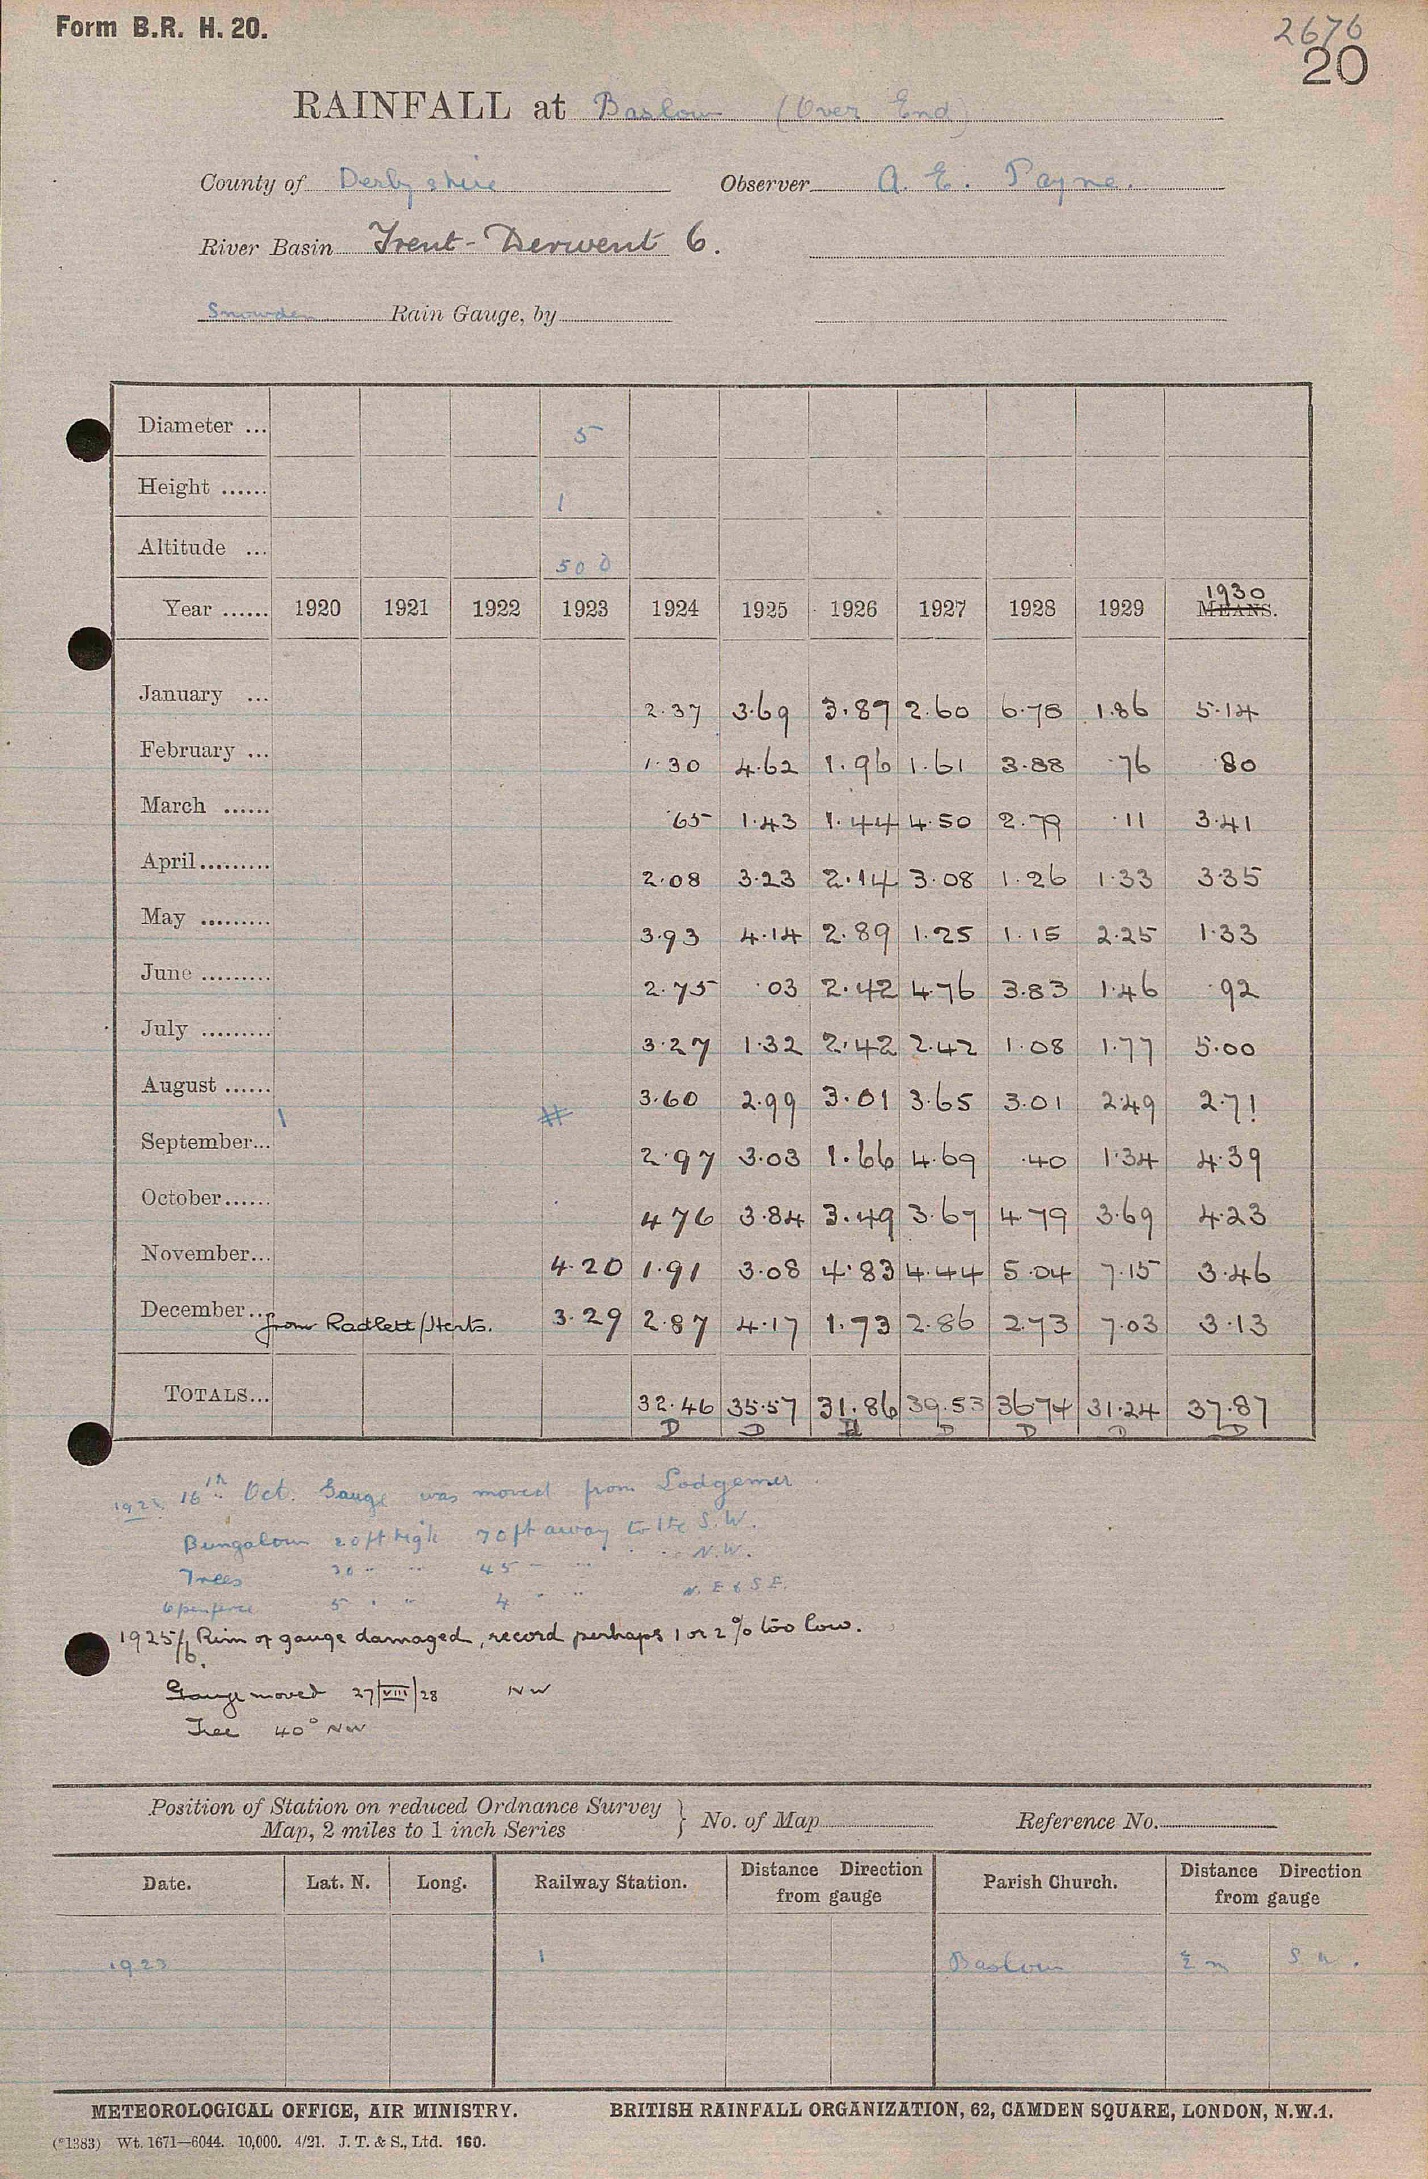 Form B.R. H. 20.
2676
20
RAINFALL at Baslow (Over End)
County of Derbyshire Observer A. E. Payne.
River Basin Trent-Derwent 6.
Snowden Rain Gauge, by
Diameter ... 5
Height ...... 1
Altitude ... 500
Year ...... 1920 1921 1922 1923 1924 1925 1926 1927 1928 1929 1930 MEANS.
January ... 2.37 3.69 3.87 2.60 6.78 1.86 5.14
February ... 1.30 4.62 1.96 1.61 3.88 .76 .80
March ...... .65 1.43 1.44 4.50 2.79 .11 3.41
April......... 2.08 3.23 2.14 3.08 1.26 1.33 3.35
May ......... 3.93 4.14 2.89 1.25 1.15 2.25 1.33
June ......... 2.75 .03 2.42 4.76 3.83 1.46 .92
July ......... 3.27 1.32 2.42 2.42 1.08 1.77 5.00
August ...... 3.60 2.99 3.01 3.65 3.01 2.49 2.71
September... 2.97 3.03 1.66 4.69 .40 1.34 4.39
October...... 4.76 3.84 3.49 3.67 4.79 3.69 4.23
November... 4.20 1.91 3.08 4.83 4.44 5.04 7.15 3.46
December... from Radlett/Herts. 3.29 2.87 4.17 1.73 2.86 2.73 7.03 3.13
TOTALS... 32.46 35.57 31.86 39.53 36.74 31.24 37.87
D D D D D D
16th Oct. Gauge was moved from
Bungalow 20 ft high 70 ft away to the S.W.
Trees 30 " " 45 " " N.W.
Open fence 5 " " 4 " " N.E & S.E.
1925/6. Rim of gauge damaged, record perhaps 1 or 2% too low.
Gauge moved 27/VIII/28 NW
Tree 40° NW
Position of Station on reduced Ordnance Survey
Map, 2 miles to 1 inch Series } No. of Map Reference No.
Date. Lat. N. Long. Railway Station. Distance Direction from gauge Parish Church. Distance Direction from gauge
1923 Baslow ½ m S.W.
METEOROLOGICAL OFFICE, AIR MINISTRY. BRITISH RAINFALL ORGANIZATION, 62, CAMDEN SQUARE, LONDON, N.W.1.
(*1383) Wt. 1671—6044. 10,000. 4/21. J. T. & S., Ltd. 160.